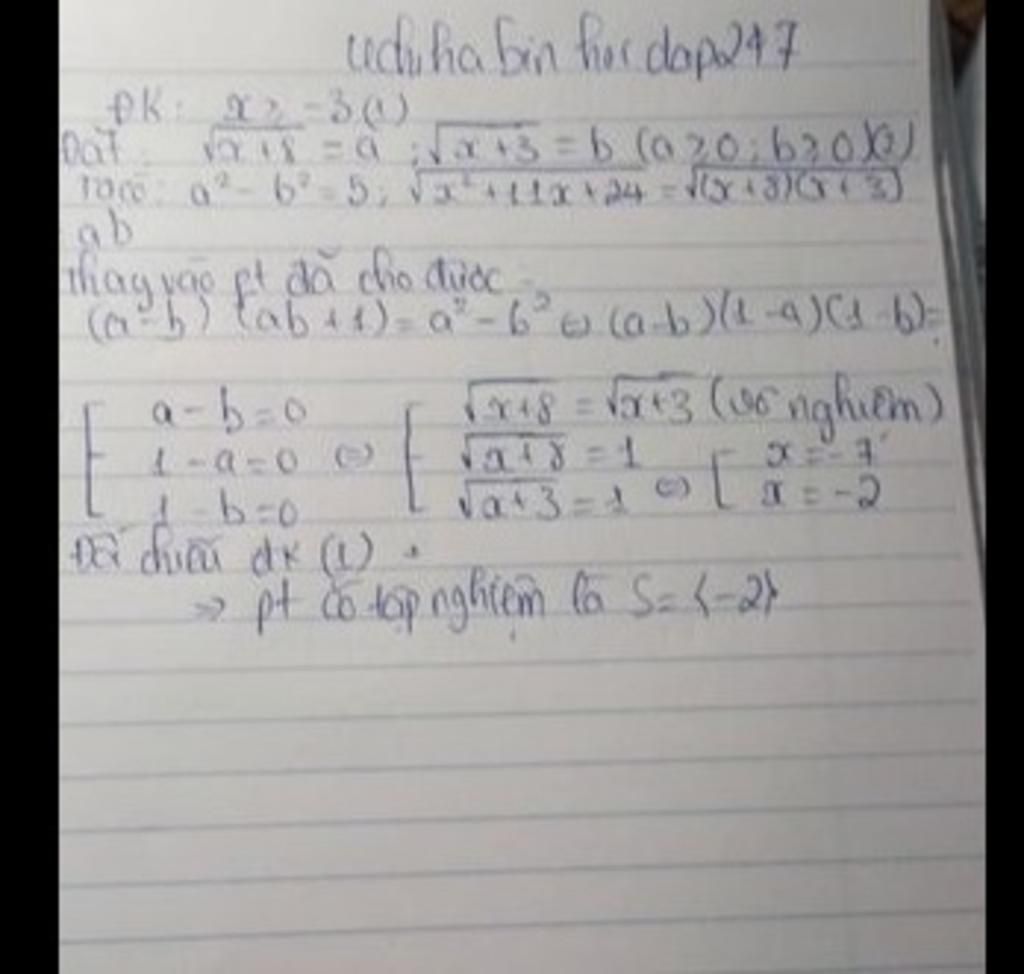 hoidap247
ĐK: x ≥ -3 (1)
Đặt: √x+8 = a ; √x+3 = b (a ≥ 0; b ≥ 0)(2)
Ta có: a² - b² = 5; √x²+11x+24 = √(x+8)(x+3)
ab
Thay vào pt đã cho được
(a-b) (ab+1) = a² - b² ⇔ (a-b)(1-a)(1-b)=
a - b = 0 ⇔ √x+8 = √x+3 (vô nghiệm)
1 - a = 0 √x+8 = 1 ⇔ x = -7
1 - b = 0 √x+3 = 1 x = -2
Đối chiếu đk (1) .
⇒ pt có tập nghiệm là S = {-2}